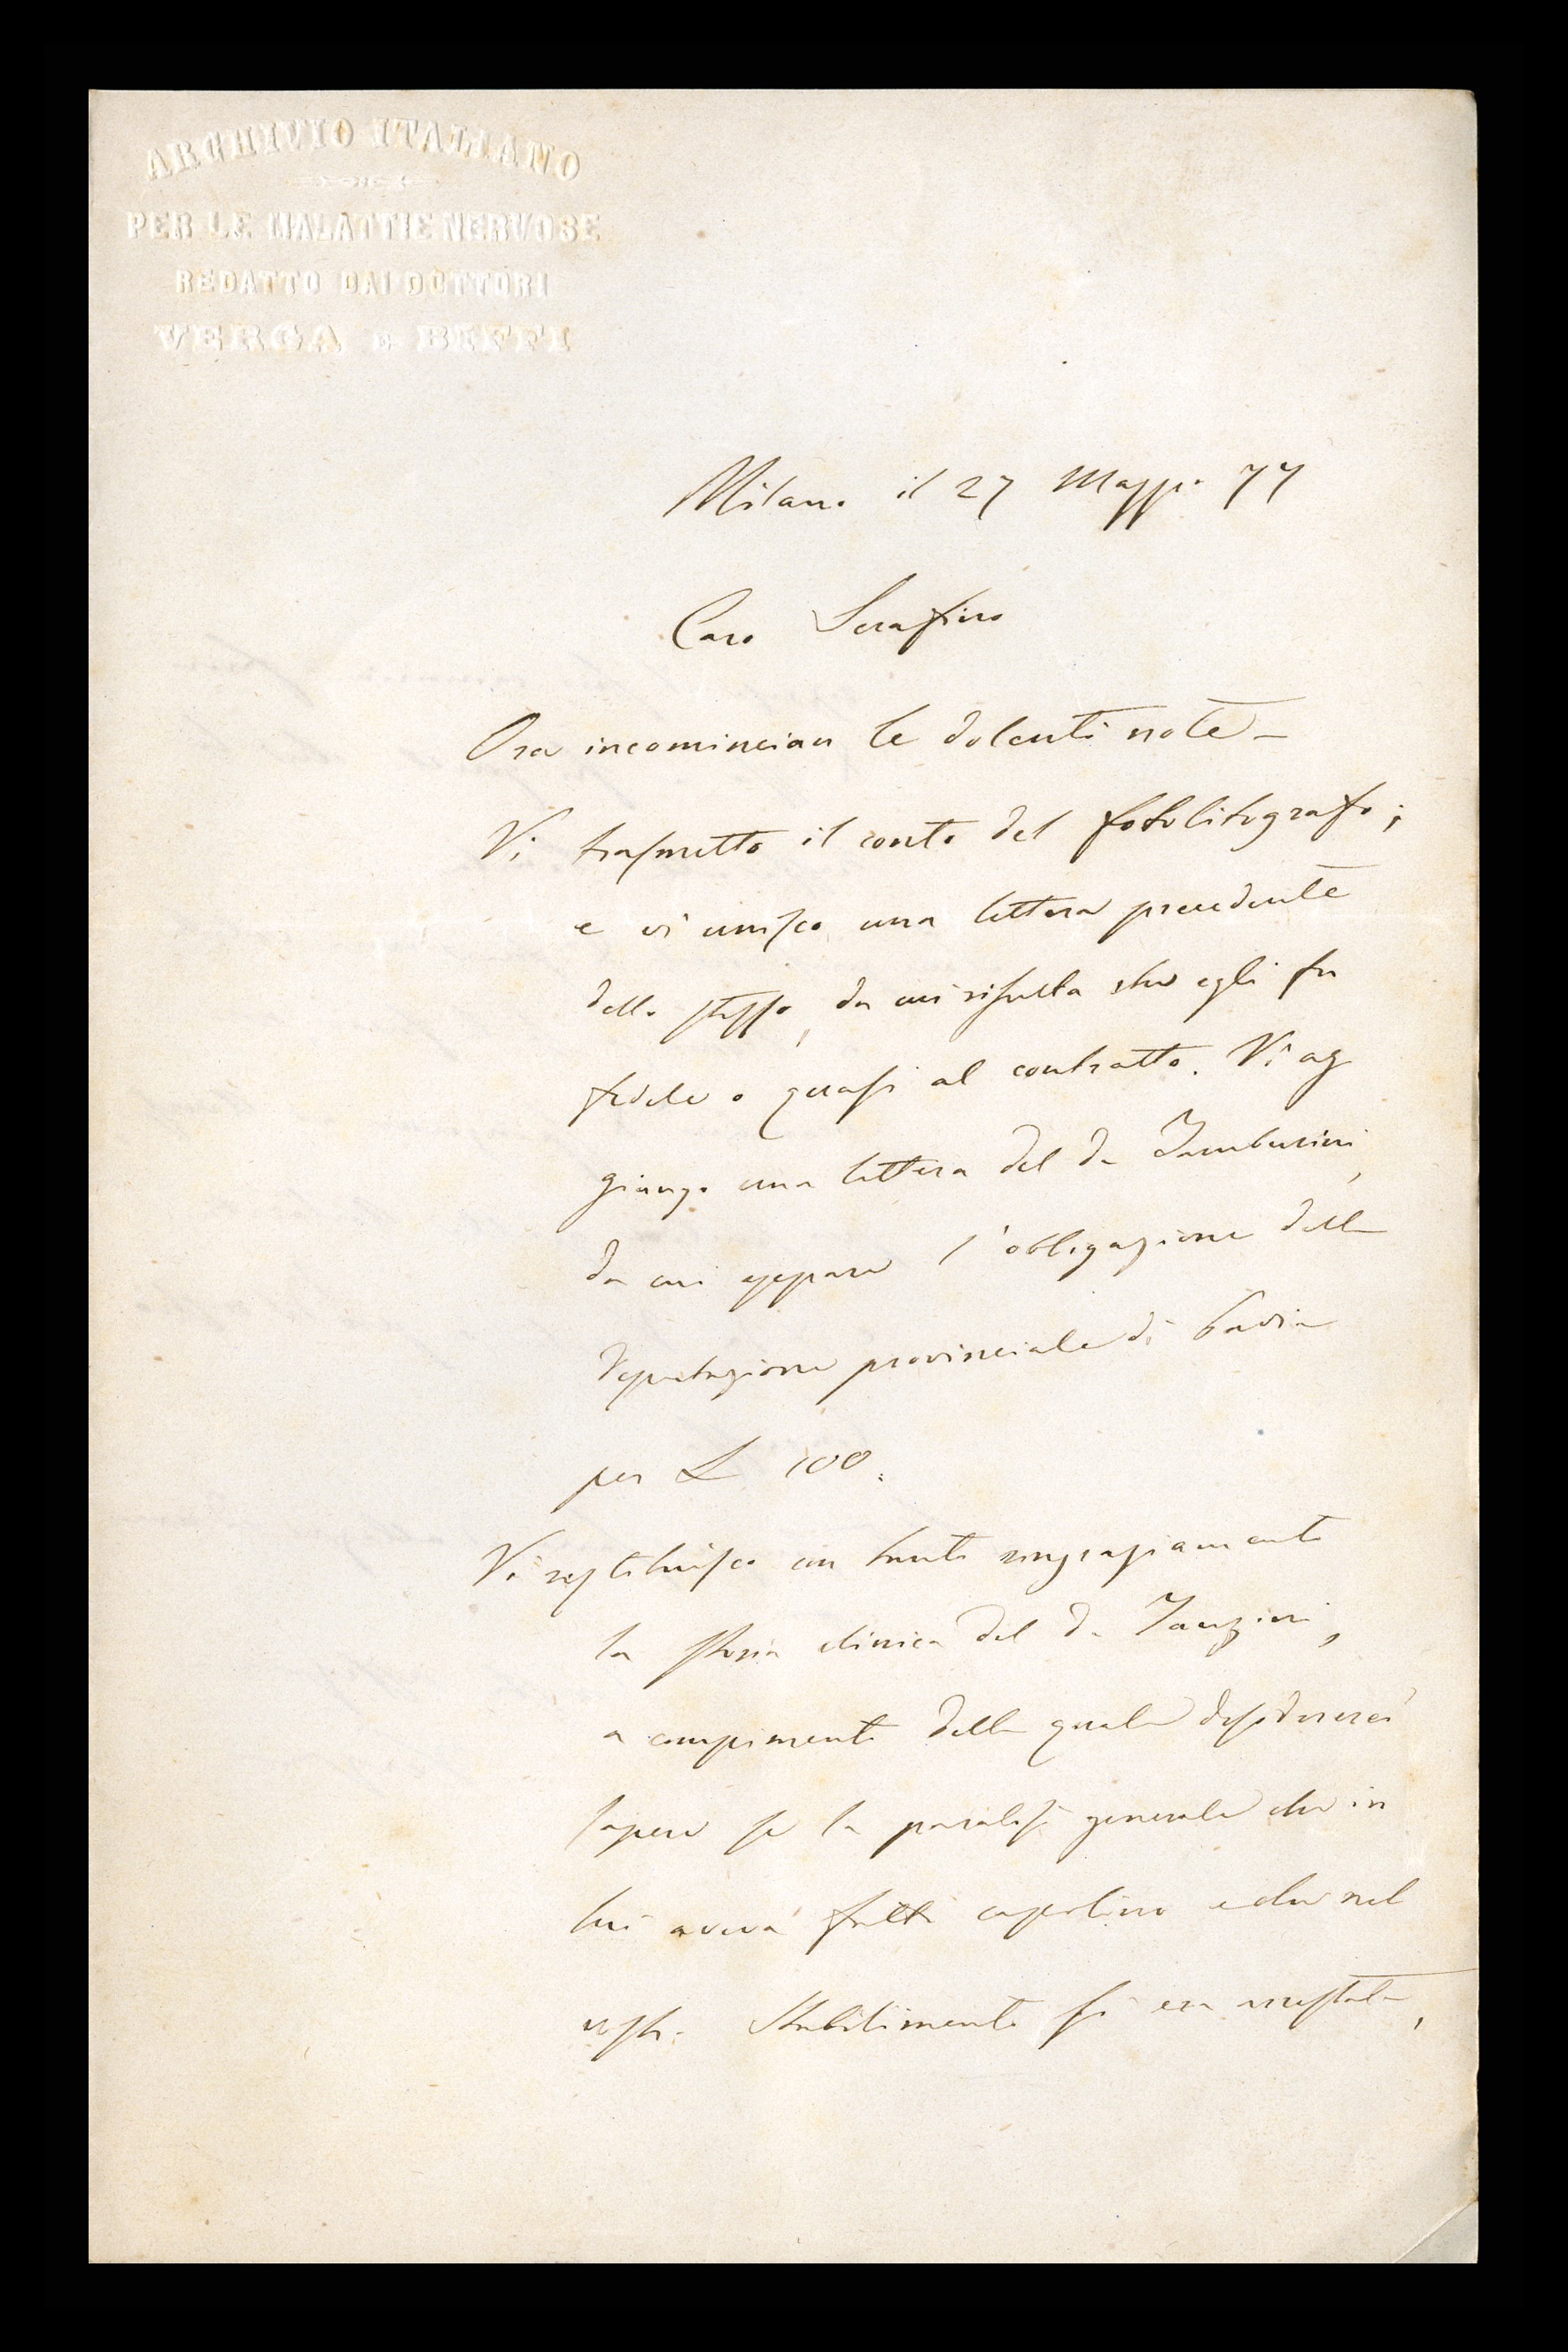 ARCHIVIO ITALIANO
PER LE MALATTIE NERVOSE
REDATTO DAI DOTTORI
VERGA E BIFFI
Milano il 27 Maggio 77
Caro Serafino
Ora incomincian le dolenti note –
Vi trasmetto il conto del fotolitografo;
e vi unisco una lettera precedente
dello stesso, da cui risulta che egli fu
fedele o quasi al contratto. Vi ag
giungo una lettera del Dr Tamburini,
da cui appare l'obbligazione della
Deputazione provinciale di Pavia
per L 100.
Vi restituisco con tanti ringraziamenti
la storia clinica del Dr Tanzini,
a compimento della quale desidererei
sapere se la paralisi generale che in
lui aveva fatto capolino e che nel
vostro Stabilimento si era arrestata,